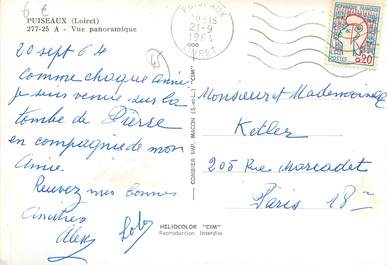 6 €
PUISEAUX (Loiret)
277-25 A - Vue panoramique
20 sept 64
Comme chaque année
je suis venue sur la
tombe de Pierre
en compagnie de mon
Amie
Recevez mes bonnes
Amitiés
Alex
CORBIER IMP. MACON (S.-et-L.) "CIM"
HELIOCOLOR "CIM"
Reproduction Interdite
21-9
1964
LOIRET
POSTES
0,20
Monsieur et Mademoiselle
Ketler
205 Rue Marcadet
Paris 18